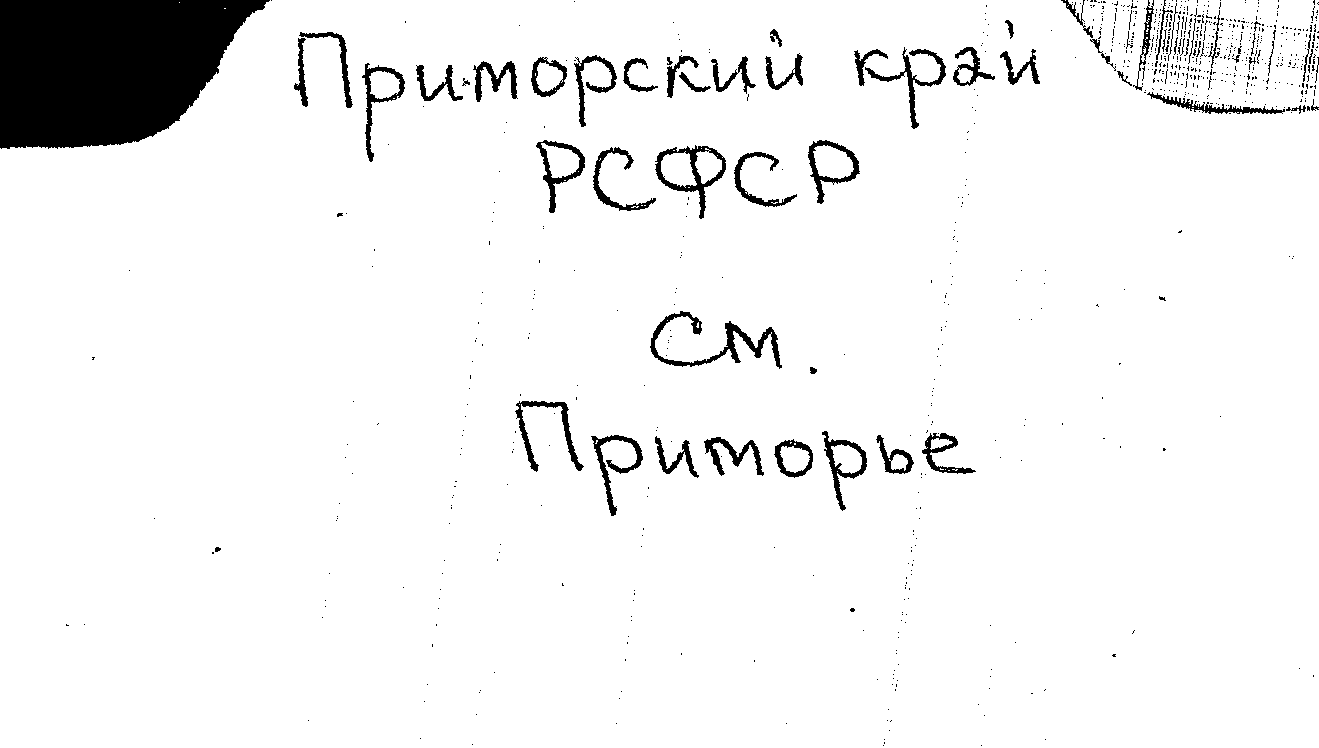 Приморский край
РСФСР
см.
Приморье